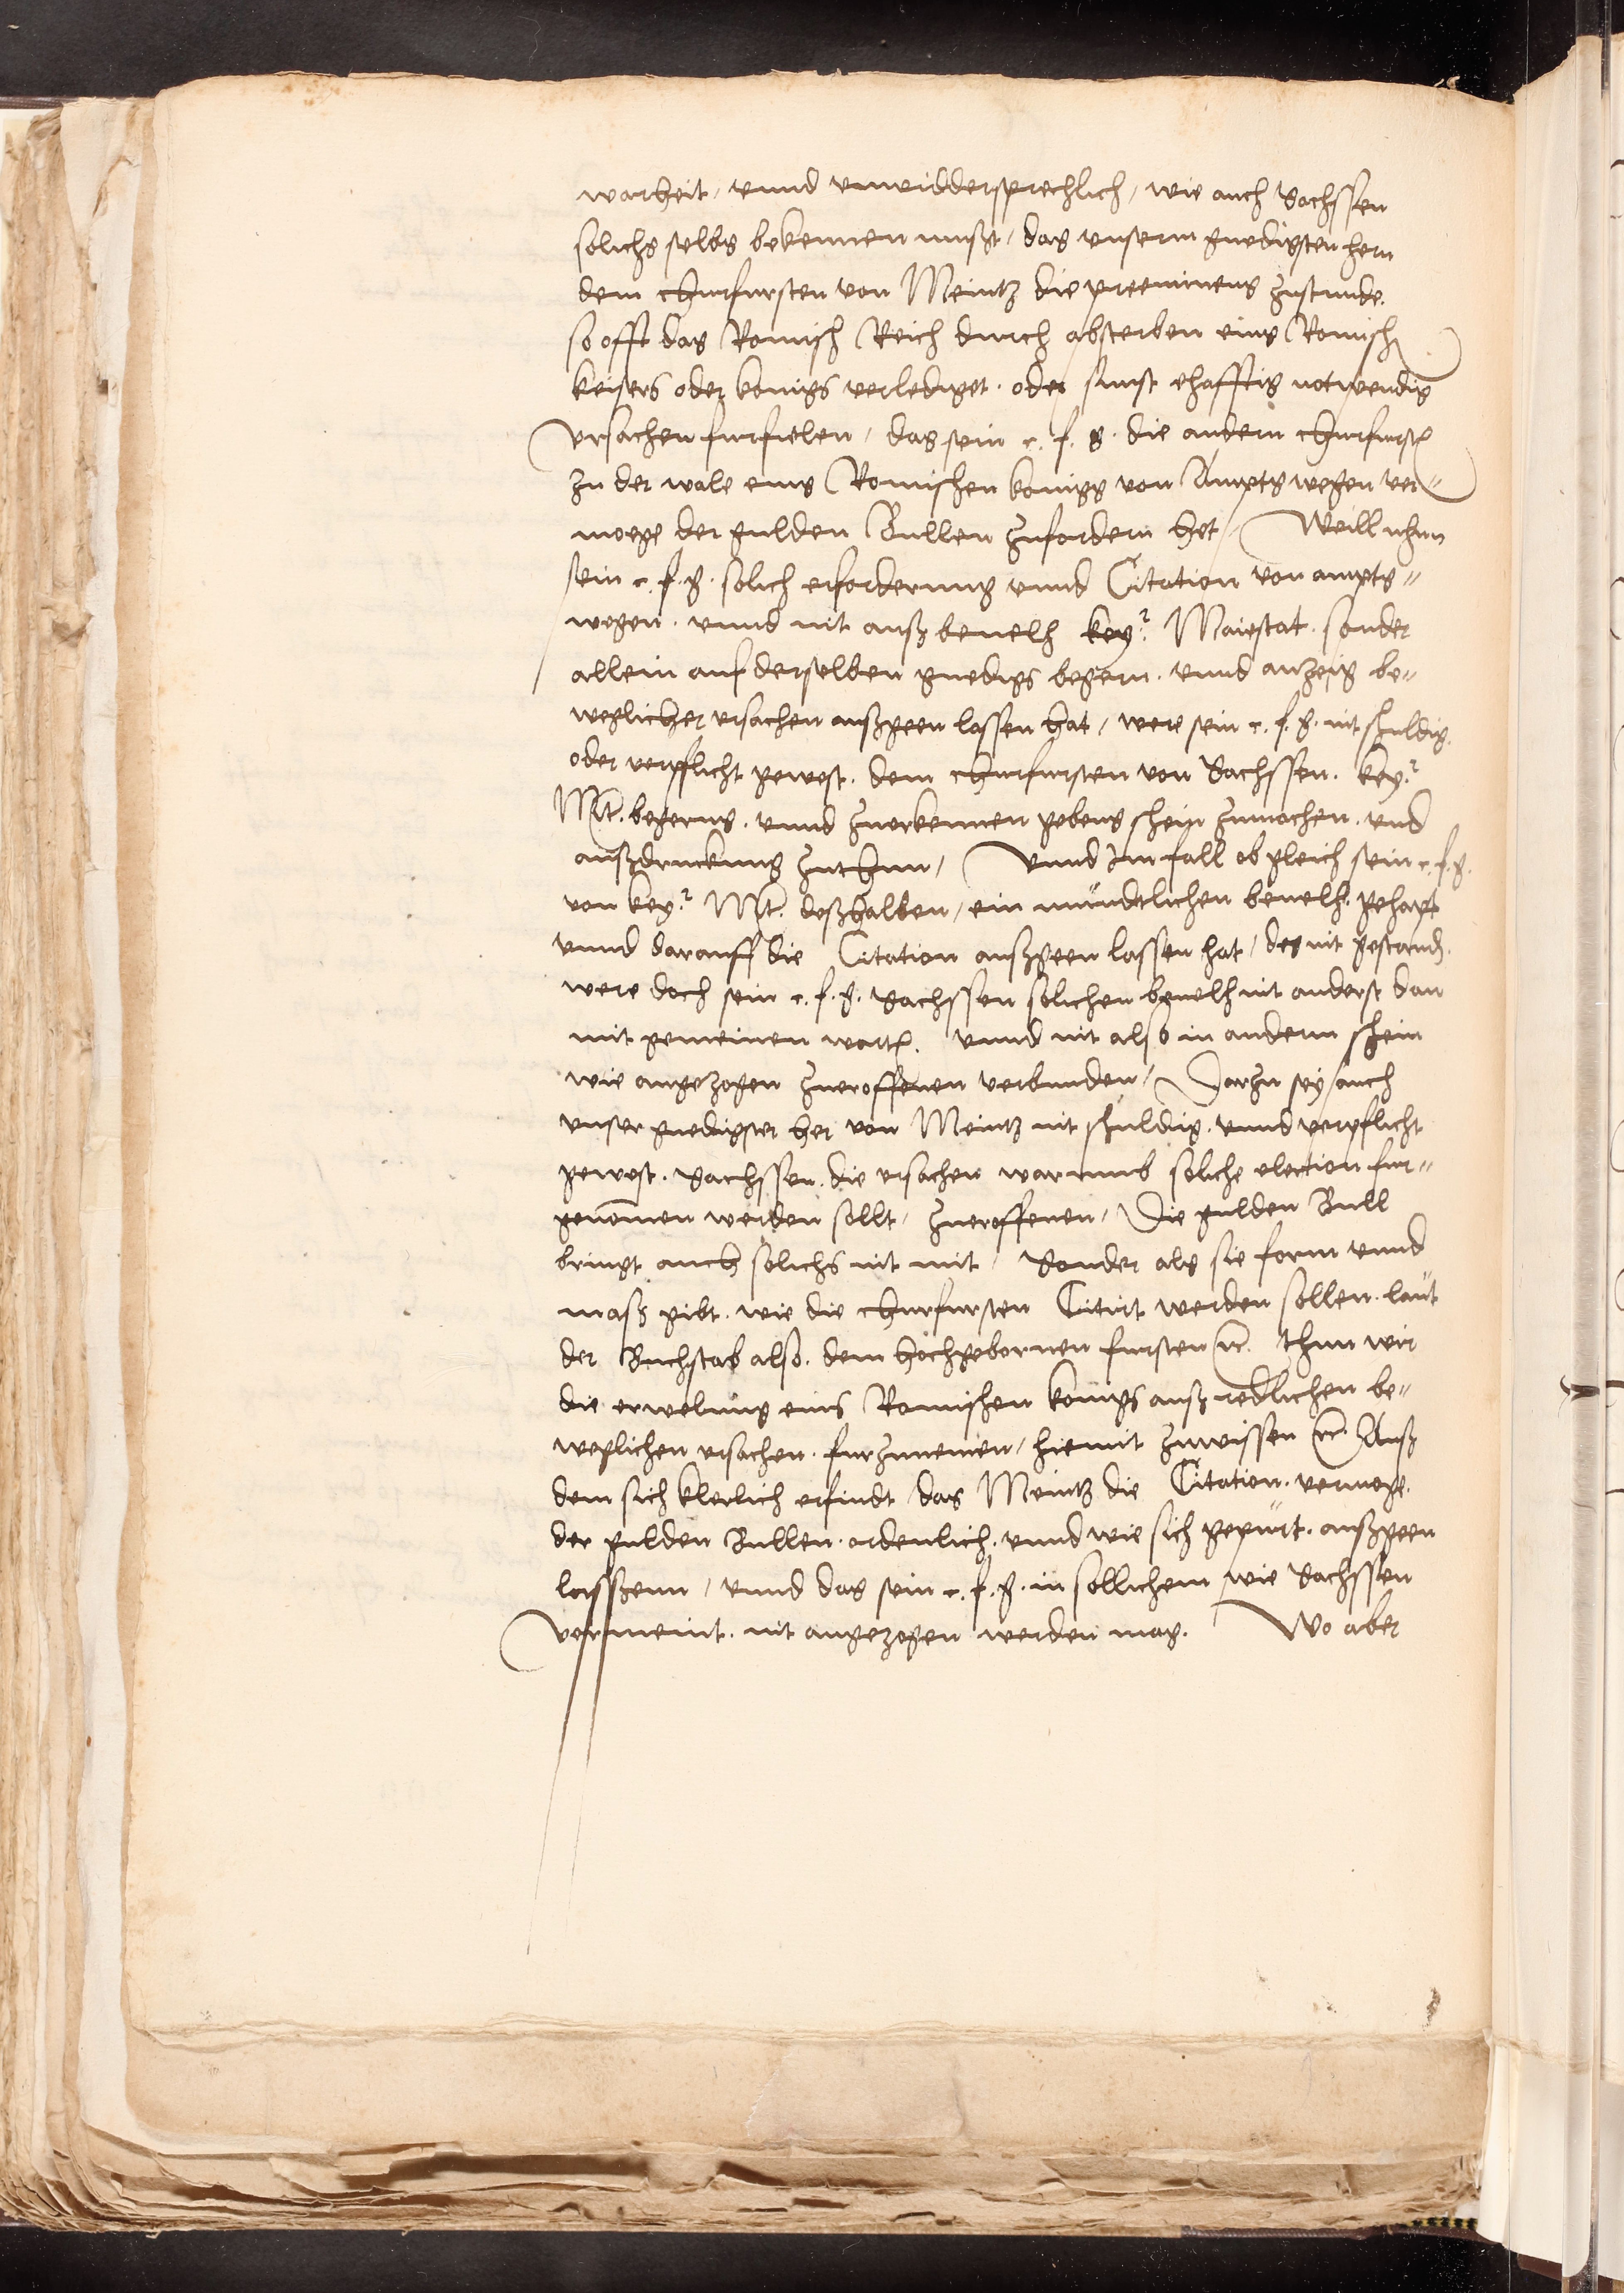 warheit, vnnd vnwiddersprechlich, wie auch Sachssen
solichs selbs bekennen must, das vnserm gnedigsten hern
dem churfursten von Meintz die preeminens zustunde.
so offt das Romisch Reich durch absterben eins Romisch
keisers oder konigs verlediget. oder sunst ehafftig notwendig
vrsachen furfielen, das sein c. f. g. die andern churfurst
zu der wale eins Romischen konigs von Ampts wegen ver=
moege der gulden Bullen zufordern het, Weill nhun
sein c. f. g. solich erforderung vnnd Citation von ampts=
wegen. vnnd nit auß beuelh key.r Maiestat. sonder
allein auf derselben gnedigs begern. vnnd anzeig be=
weglicher vrsachen außgeen lassen hat, were sein c. f. g. nit schuldig.
oder verpflicht gewest. dem churfursten von Sachssen. key.r
Mt. begerns. vnnd zuerkennen gebens schein zumachen. vnd
außdruckung zuthun, Vnnd Im fall ob gleich sein c. f. g.
von key.r Mt. deßhalben, ein mundtlichen beuelh. gehapt
vnnd darauff die Citation außgeen lassen hat, des nit gestand.
were doch sein c. f. g. Sachssen solichen beuelh nit anderst dan
mit gemeinen wort. vnnd nit also in anderm schein
wie angezogen zueroffenen verbunden, Darzu sey auch
vnser gnedigster her von Meintz nit schuldig. vnnd verpflicht
gewest. Sachssen. die vrsachen warumb soliche election fur=
genomen werden sollt, zueroffenen, Die gulden Bull
bringt auch solichs nit mit, Sonder als sie form vnnd
maß gibt. wie die churfursten Citirt werden sollen. laut
der Buchstab also. dem hochgebornen fursten rc. thun wir
die erwelung eins Romischen konigs auß redlichen be=
weglichen vrsachen. furzunemen, hiemit zuwissen rc. Auß
dem sich klerlich erfindt das Meintz die Citation. vermoge.
der gulden Bullen. ordenlich. vnnd wie sich gepurt. außgeen
lasssenn, vnnd das sein c. f. g. in sollichem wie Sachssen
vermeint. nit angezogen werden mag. Wo aber